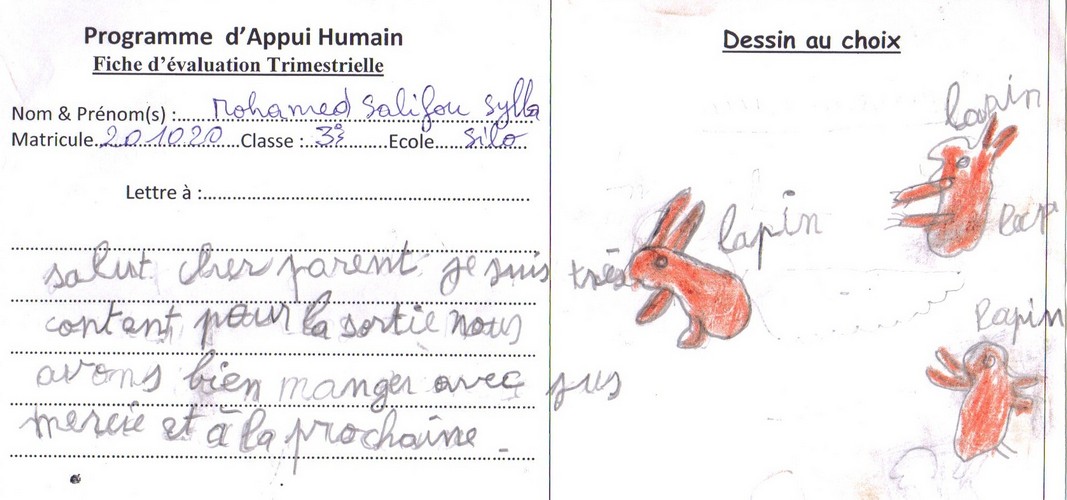 Programme d'Appui Humain
Fiche d'évaluation Trimestrielle
Nom & Prénom(s) : Mohamed Salifou Sylla
Matricule 201020 Classe : 3è Ecole Silo
Lettre à :
salut cher parent je suis très
content pour la sortie nous
avons bien manger avec jus
mercie et à la prochaine
Dessin au choix
lapin
lapin
lapin